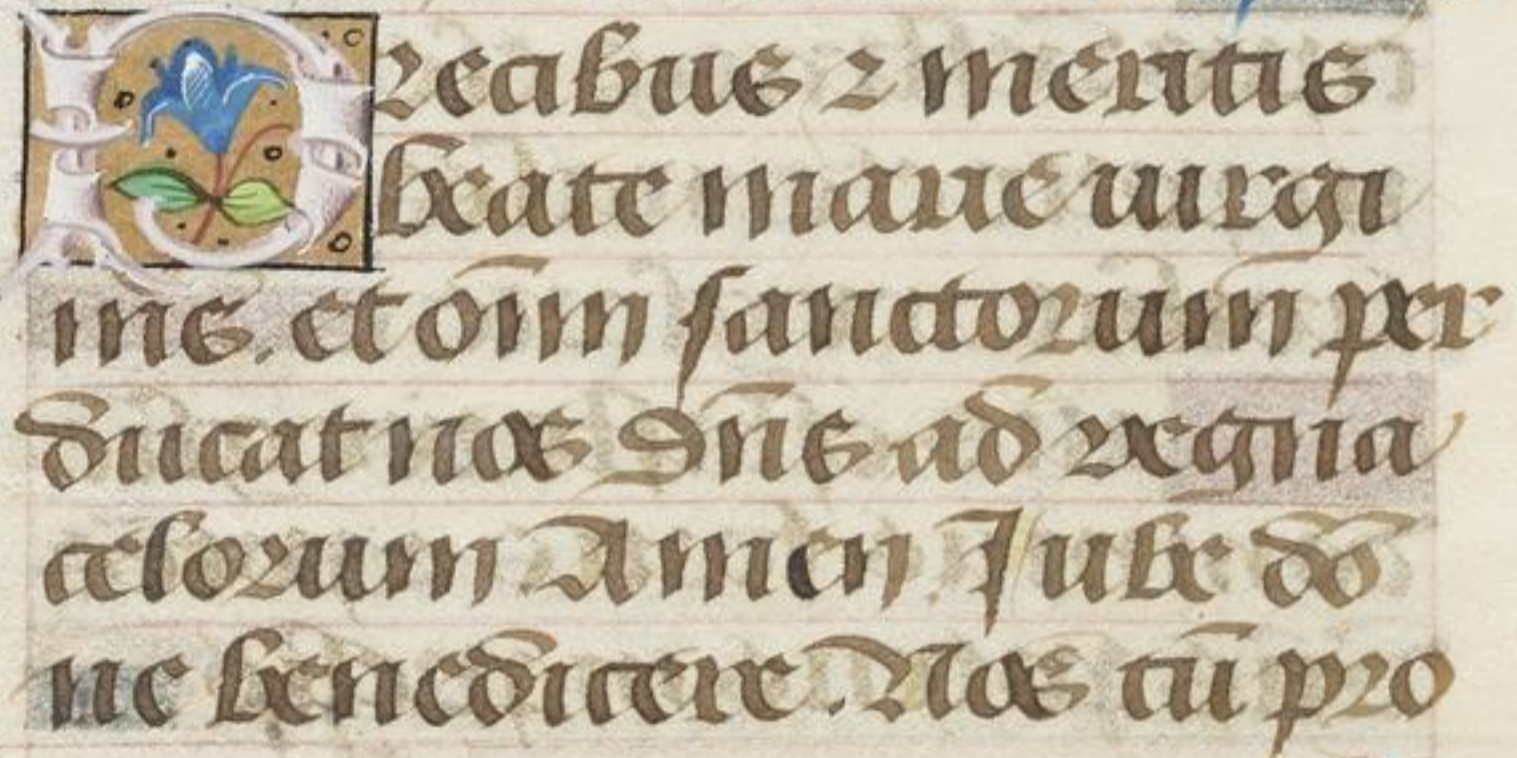 Precibus ⁊ meritis
beate marie uirgi
nis. et om̅i sanctorum̅ per
ducat nos Dn̅s ad regna
celorum Amen Jube do̅
ne benedicere. Nos cu̅ pro